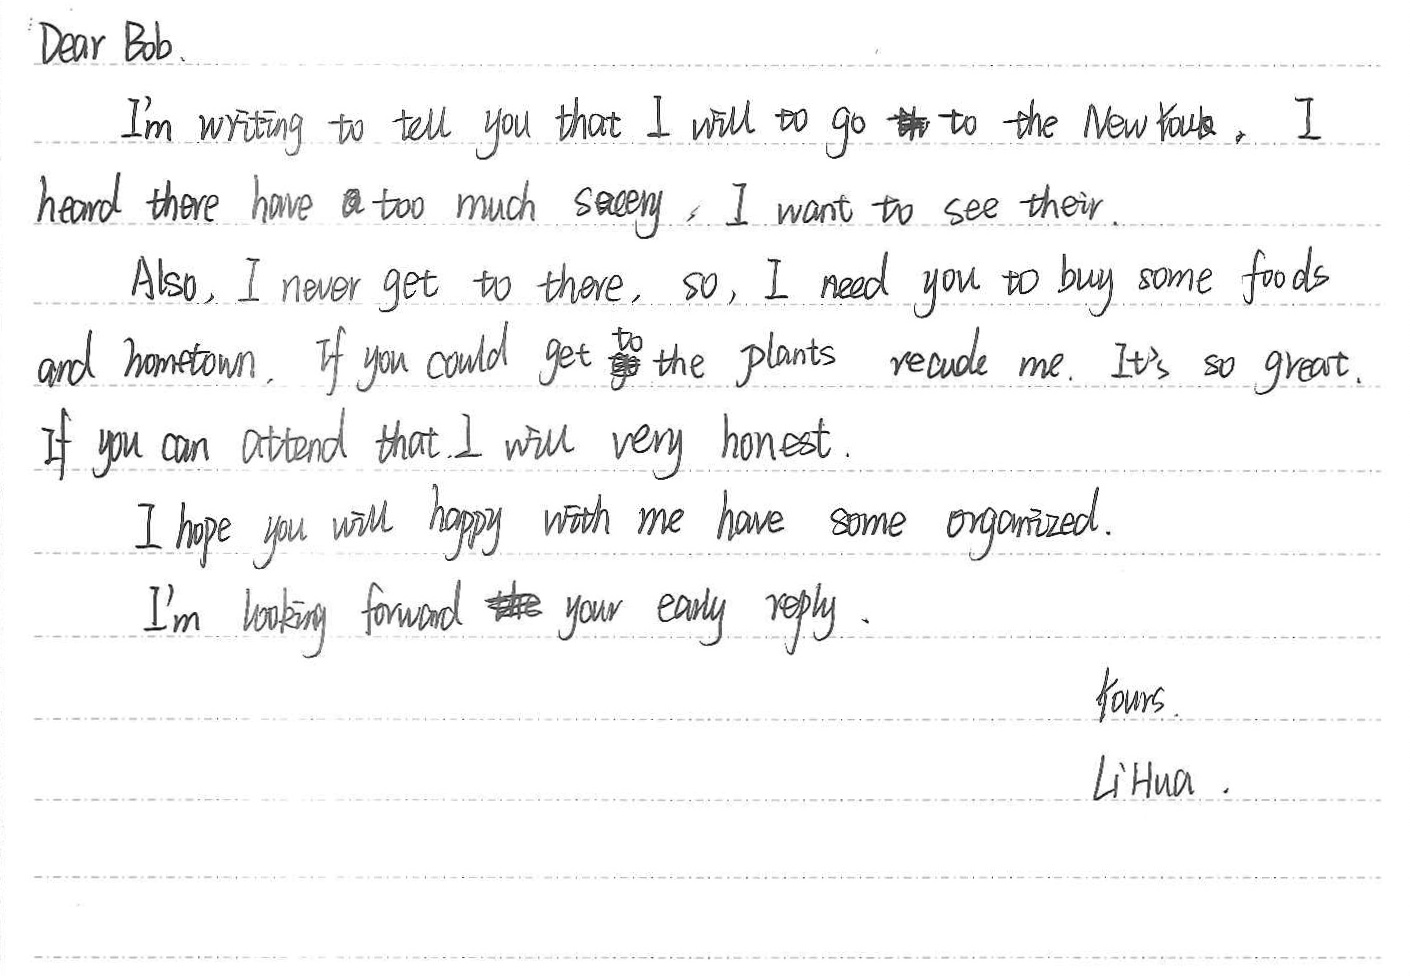 Dear Bob.
I'm writing to tell you that I will to go to the New York, I
heard there have too much scenery, I want to see their.
Also, I never get to there, so, I need you to buy some foods
and hometown. If you could get to the plants recude me. It's so great.
If you can attend that. I will very honest.
I hope you will happy with me have some organized.
I'm looking forward your early reply.
Yours.
Li Hua.